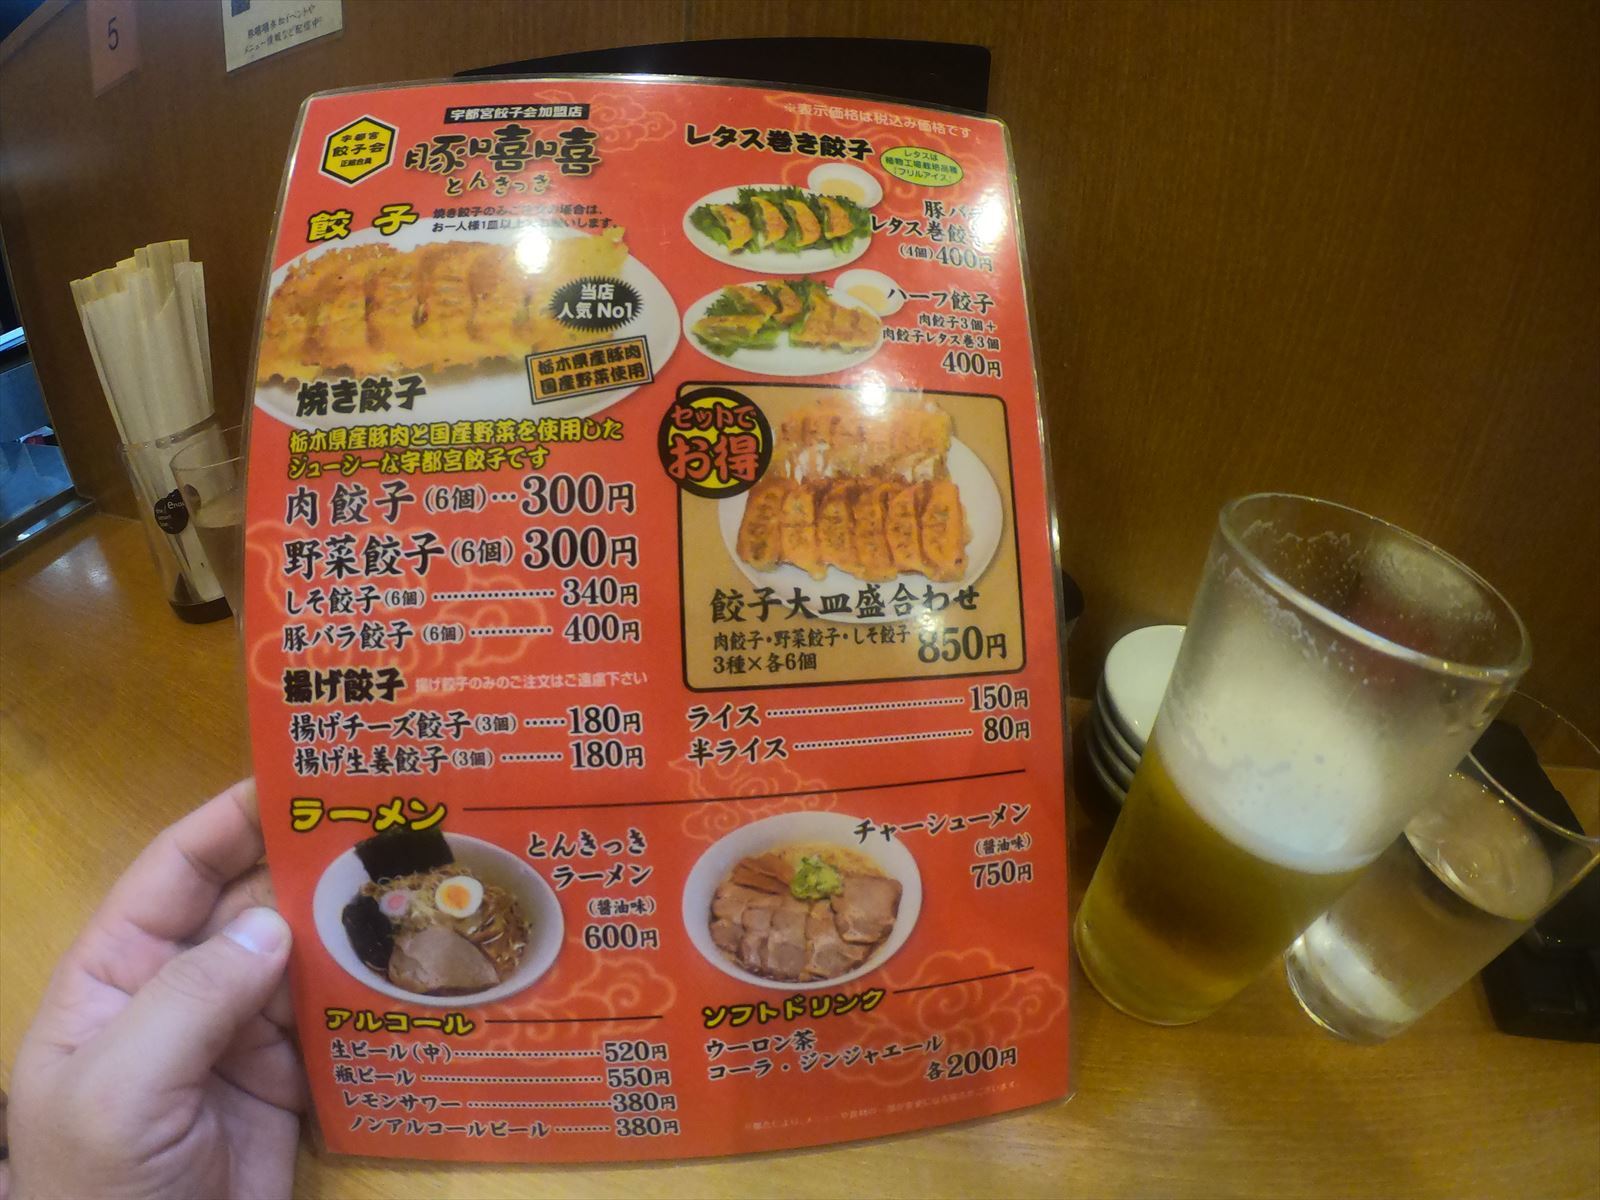 5
宇都宮餃子会加盟店
宇都宮
餃子会
正組合員
豚嘻嘻
とんきっき
餃子
焼き餃子のみご注文の場合は、
お一人様1皿以上お願いします。
当店
人気No1
栃木県産豚肉
国産野菜使用
焼き餃子
栃木県産豚肉と国産野菜を使用した
ジューシーな宇都宮餃子です
肉餃子(6個)…300円
野菜餃子(6個)300円
しそ餃子(6個)………340円
豚バラ餃子(6個)………400円
揚げ餃子 揚げ餃子のみのご注文はご遠慮下さい
揚げチーズ餃子(3個)……180円
揚げ生姜餃子(3個)………180円
※表示価格は税込み価格です
レタス巻き餃子
レタスは
植物工場栽培品種
「フリルアイス」
豚バラ
レタス巻餃子
(4個)400円
ハーフ餃子
肉餃子3個+
肉餃子レタス巻3個
400円
セットで
お得
餃子大皿盛合わせ
肉餃子・野菜餃子・しそ餃子
3種×各6個
850円
ライス………150円
半ライス………80円
ラーメン
とんきっき
ラーメン
(醤油味)
600円
チャーシューメン
(醤油味)
750円
アルコール
生ビール(中)………520円
瓶ビール………550円
レモンサワー………380円
ノンアルコールビール………380円
ソフトドリンク
ウーロン茶
コーラ・ジンジャエール
各200円